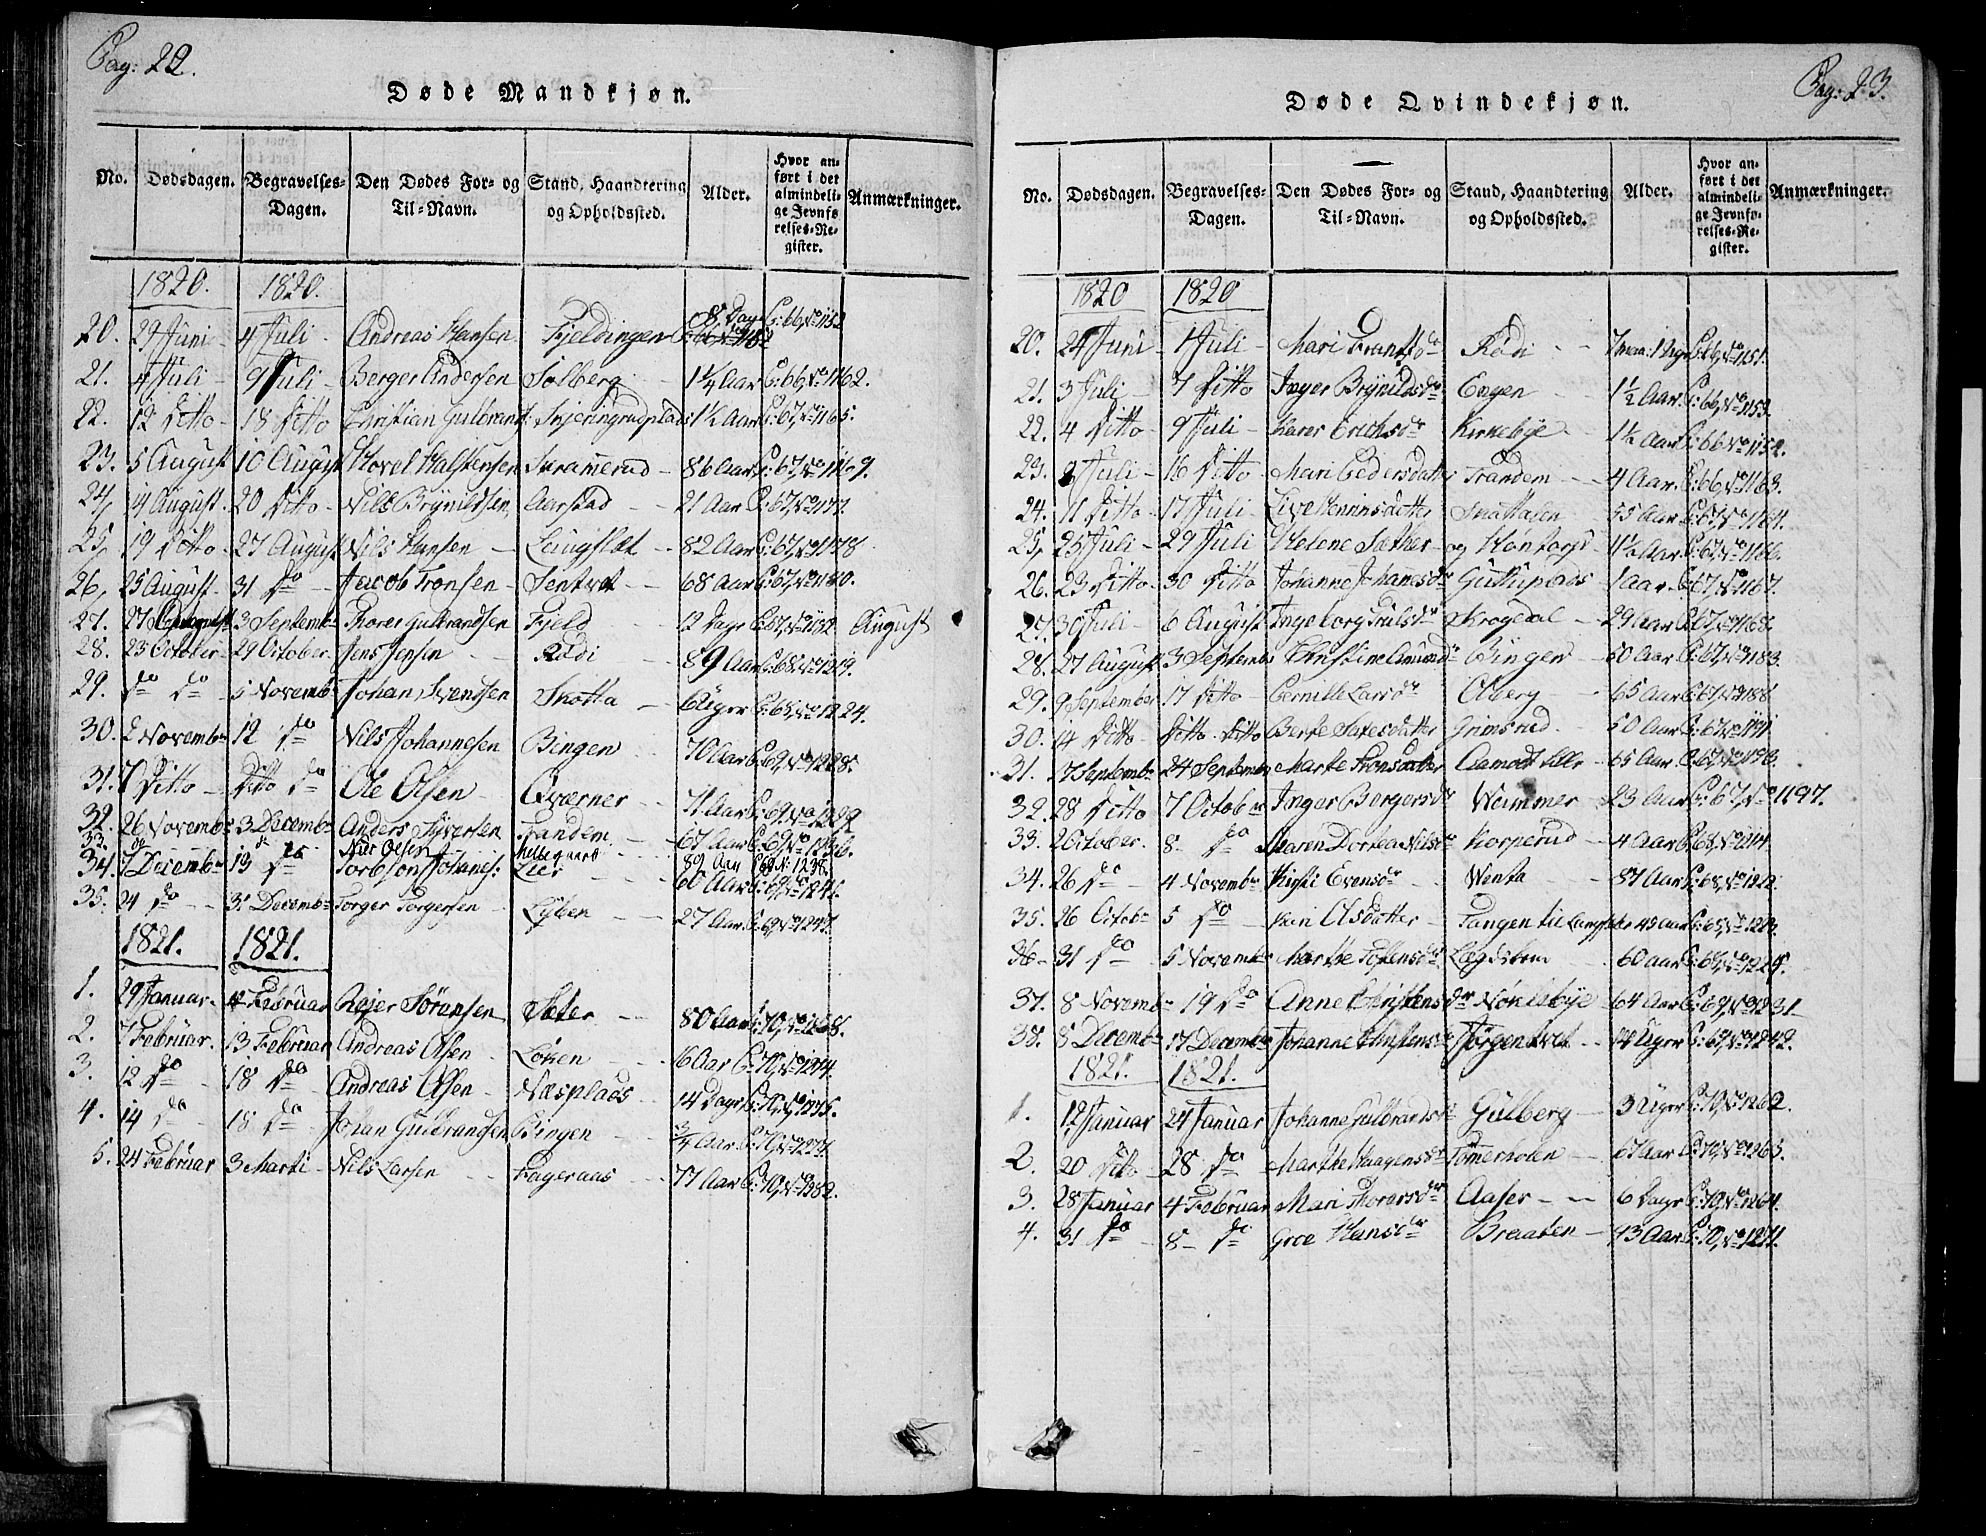 Pag: 22.
Døde Mandkjøn.
No. Dødsdagen. Begravelses-Dagen. Den Dødes For- og Til-Navn. Stand, Haandtering og Opholdssted. Alder. Hvor anført i det almindelige Jevnførelses-Register. Anmærkninger.
1820. 1820.
20. 29 Juni 4 Juli Andreas Hansen Fjeldingen 8 Dage P: 66, No 1152
21. 4 Juli 9 Juli Berger Andersen Solberg 1 1/4 Aar P: 66, No 1162.
22. 12 Ditto 18 Ditto Christian Gulbrands: 1 1/2 Aar P: 67, No 1165.
23. 5 August 10 August Hovel Halstensen Skramerud 86 Aar P: 67, No 1169.
24. 14 August 20 Ditto Nils Brynildsen Aarstad 21 Aar P: 67, No 1177.
25. 19 Ditto 27 August Nils Hansen Langslet 82 Aar P: 67, No 1178.
26. 25 August 31 do Jacob Tronsen Sentvet 68 Aar P: 67, No 1180.
27. 27 3 Septemb: Thorer Gulbrandsen Fjeld 12 Dage P: 67, No 1182 August
28. 23 October 29 October Jens Jensen Rødi 89 Aar P: 68, No 1219.
29. do do 5 Novemb: Johan Svendsen Skotta 6 Uger P: 68, No 1224.
30. 2 Novemb: 12 do Nils Johannesen Bingen 70 Aar P: 69, No 1228.
31. 7 Ditto Ditto do Ole Olsen Qværner 71 Aar P: 69, No 1229
32. 26 Novemb: 3 Decemb: Anders Syversen Trandem 67 Aar P: 69, No 1236.
33. do do Nils Olsen Hellegaard 89 Aar P. 69 N: 1238.
34. 7 Decemb: 13 do Torbjørn Johanes: Lier 60 Aar P: 69, No 1241.
35. 24 do 31 Decemb: Torger Torgersen 27 Aar P: 69, No 1247.
1821. 1821.
1. 29 Januar 4 Februar Rejer Sørensen Sæter 80 Aar P: 70, No 1268.
2. 7 Februar 13 Februar Andreas Olsen Løken 16 Aar P: 70, No 1274.
3. 12 do 18 do Andreas Olsen Næsplads 14 Dage P: 70, No 1275.
4. 14 do 18 do Johan Gulbrandsen Bingen 3/4 Aar P: 70, No 1277.
5. 24 Februar 3 Marti Nils Larsen Fageraas 77 Aar P: 70, No 1282.
Pag: 23.
Døde Qvindekjøn.
No. Dødsdagen. Begravelses-Dagen. Den Dødes For- og Til-Navn. Stand, Haandtering og Opholdssted. Alder. Hvor anført i det almindelige Jevnførelses-Register. Anmærkninger.
1820 1820
20. 24 Juni 1 Juli Mari Frantsdr Rødi P: 66, No 1151.
21. 3 Juli 7 Ditto Inger Brynildsdr Engen 1 1/2 Aar P: 66, No 1153.
22. 4 Ditto 9 Juli Karen Erichsdr Kirkebye 1 1/2 Aar P: 66 No 1154.
23. Juli 16 Ditto Mari Pedersdatter Trandem 4 Aar P: 66, No 1163.
24. 11 Ditto 17 Juli Live Henrinsdatter Snattasen 55 Aar P: 67, No 1164.
25. 25 Juli 29 Juli Helene Sæther og P: 67, No 1166.
26. 23 Ditto 30 Ditto Johanne Johanesdr 1 Aar P: 67, No 1167.
27. 30 Juli 6 August Ingeborg Trulsdr Krogdal 29 Aar P: 67, No 1168.
28. 27 August 3 Septemb: Christine Amundsdr Bingen 50 Aar P: 67, No 1183.
29. 9 September 17 Ditto Pernille Larsdr Olberg 65 Aar P: 67, No 1188
30. 14 Ditto Ditto Ditto Berte Saxesdatter Grimsrud 50 Aar P: 67, No 1191.
31. 17 Septemb: 24 Septemb: Marte Tronsdatter Aamodt Eller 65 Aar P: 67, No 1193.
32. 28 Ditto 7 Octob: Inger Bergersdr Wammer 23 Aar P: 67, No 1197.
33. 2 October. 8. do Maren Dortea Nilsdr Korperud 4 Aar P: 68, No 1214.
34. 26 do 4 Novemb: Kirsti Evensdr Wenta 87 Aar P: 68, No 1222.
35. 26 Octob: 5 do Kari Olsdatter Tangen til 43 Aar P: 68, No 1223.
36. 31 do 5 Novemb: Marthe Toftensdr 60 Aar P: 68, No 1225.
37. 8 Novemb: 19 do Anne Christensdr Nøkelbye 64 Aar P: 69, No 1231
38. 8 Decemb: 17 Decemb: Johanne Christensdr Jørgentvet 14 Uger P: 69, No 1242.
1821. 1821.
1. 17 Januar 24 Januar Johanne Gulbrandsdr Gulberg 3 Uger P: 70, No 1262.
2. 20 Ditto 28 do Marthe Haagensdr Tømerholen 67 Aar P: 70, No 1263.
3. 28 Januar 4 Februar Mari Thorersdr Aaser 6 Dage P: 70, No 1264.
4. 31 do 8 do Groe Hansdr Braaten 43 Aar P: 70, No 1271.